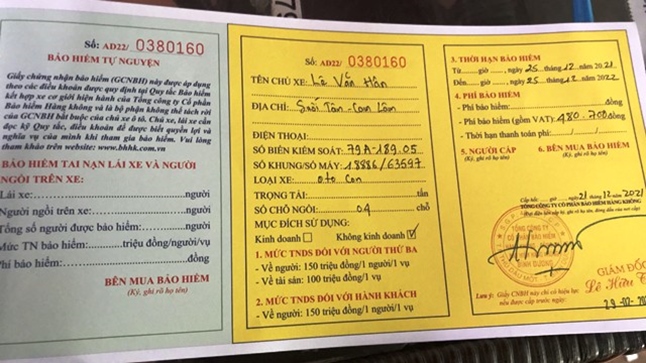 Số: AD22/ 0380160
BẢO HIỂM TỰ NGUYỆN
Giấy chứng nhận bảo hiểm (GCNBH) này được áp dụng
theo các điều khoản được quy định tại Quy tắc Bảo hiểm
kết hợp xe cơ giới hiện hành của Tổng công ty Cổ phần
Bảo hiểm Hàng không và là bộ phận không thể tách rời
của GCNBH bắt buộc của chủ xe ô tô. Chủ xe, lái xe cần
đọc kỹ Quy tắc, điều khoản để được biết quyền lợi và
nghĩa vụ của mình khi tham gia bảo hiểm. Vui lòng
tham khảo trên website: www.bhhk.com.vn
BẢO HIỂM TAI NẠN LÁI XE VÀ NGƯỜI
NGỒI TRÊN XE:
Lái xe:...người
Người ngồi trên xe:...người
Tổng số người được bảo hiểm:...người
Mức TN bảo hiểm:...triệu đồng/người/vụ
Phí bảo hiểm:...đồng
BÊN MUA BẢO HIỂM
(Ký, ghi rõ họ tên)
Số: AD22/ 0380160
TÊN CHỦ XE: Lê Văn Hàn
ĐỊA CHỈ: Suối Tân - Cam Lâm
ĐIỆN THOẠI:
SỐ BIỂN KIỂM SOÁT: 79A-189.05
SỐ KHUNG/SỐ MÁY: 18886/63597
LOẠI XE: oto con
TRỌNG TẢI: tấn
SỐ CHỖ NGỒI: 04 chỗ
MỤC ĐÍCH SỬ DỤNG:
Kinh doanh Không kinh doanh
1. MỨC TNDS ĐỐI VỚI NGƯỜI THỨ BA
- Về người: 150 triệu đồng/1 người/1 vụ
- Về tài sản: 100 triệu đồng/1 vụ
2. MỨC TNDS ĐỐI VỚI HÀNH KHÁCH
- Về người: 150 triệu đồng/1 người/1 vụ
3. THỜI HẠN BẢO HIỂM
Từ....giờ ....., ngày 25 tháng 12 năm 2021
Đến....giờ ....., ngày 25 tháng 12 năm 2022
4. PHÍ BẢO HIỂM
- Phí bảo hiểm:...đồng
- Phí bảo hiểm (gồm VAT): 480.700 đồng
- Thời hạn thanh toán phí:
5. NGƯỜI CẤP 6. BÊN MUA BẢO HIỂM
(Ký, ghi rõ họ tên)
ngày 21 12 2021
TỔNG CÔNG TY CỔ PHẦN BẢO HIỂM HÀNG KHÔNG
TỔNG CÔNG TY
BÌNH DƯƠNG
GIÁM ĐỐC
Lê Hữu
Lưu ý: Giấy CNBH này chỉ có hiệu lực
nếu được cấp trước ngày: